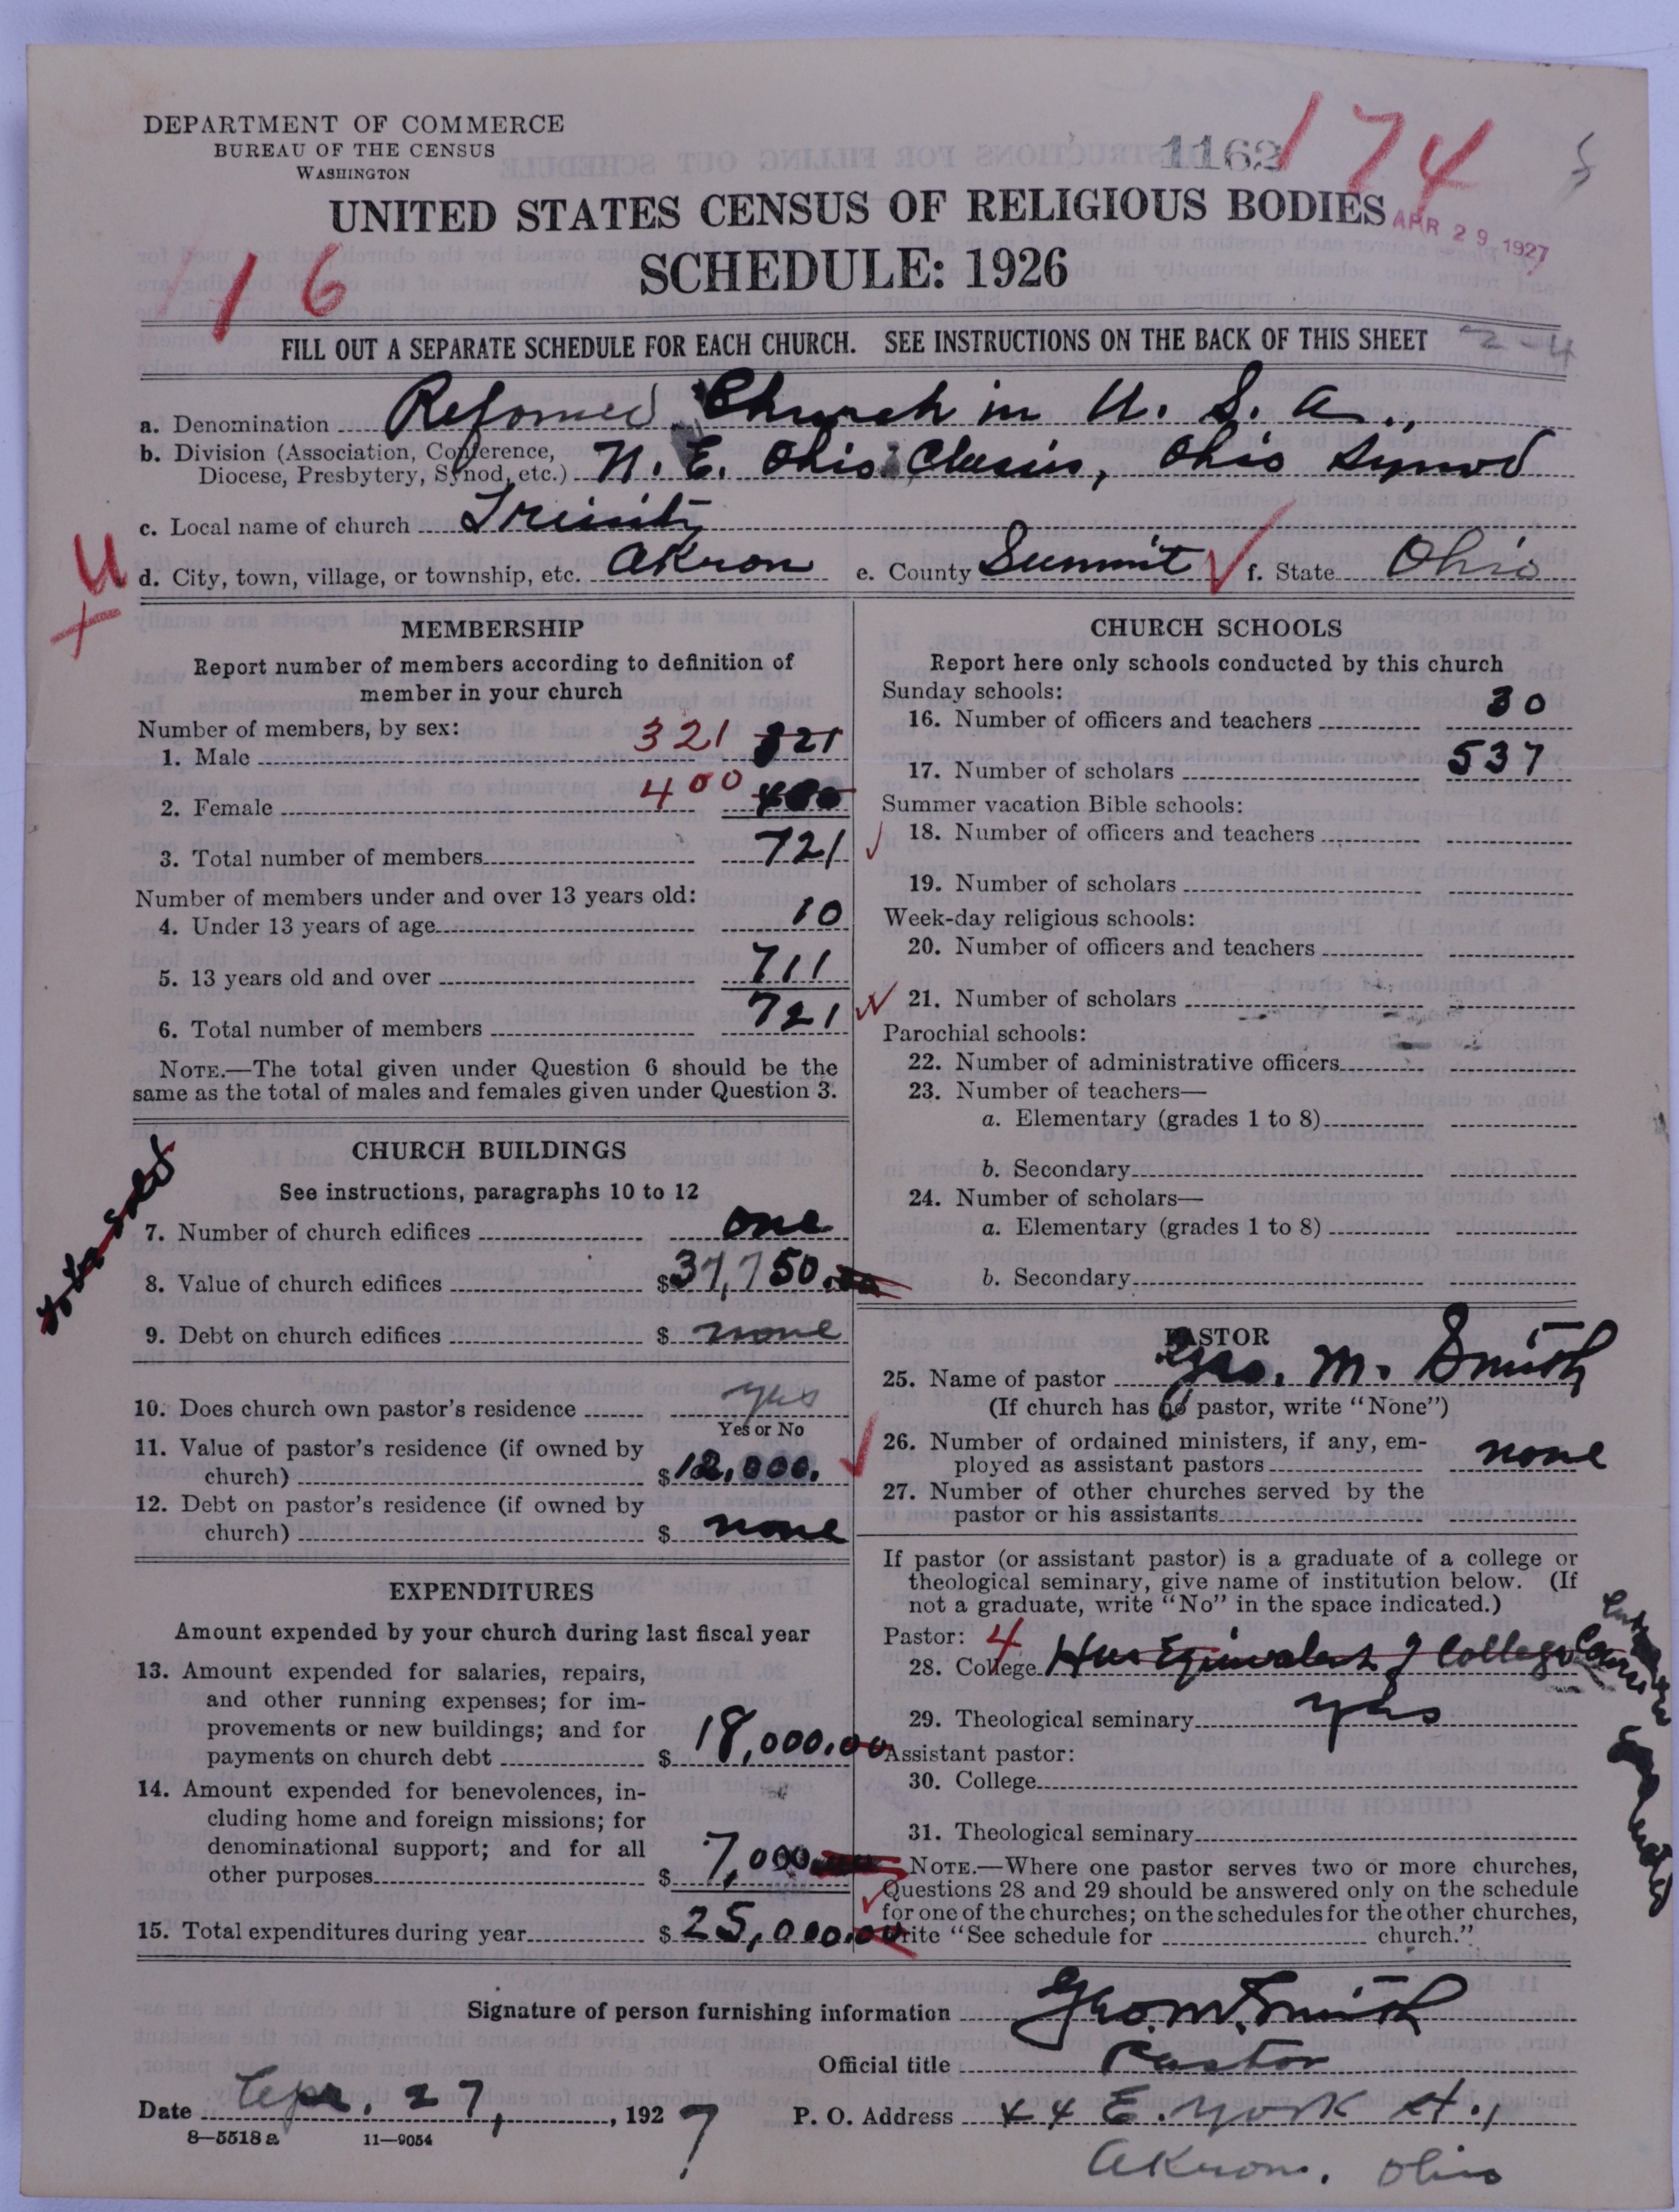 DEPARTMENT OF COMMERCE
BUREAU OF THE CENSUS
WASHINGTON
1162
174
UNITED STATES CENSUS OF RELIGIOUS BODIES
APR 29 1927
SCHEDULE: 1926
16
FILL OUT A SEPARATE SCHEDULE FOR EACH CHURCH. SEE INSTRUCTIONS ON THE BACK OF THIS SHEET
2-4
a. Denomination Reformed Church in U. S. A.
b. Division (Association, Conference,
Diocese, Presbytery, Synod, etc.) N. E. Ohio Classis, Ohio Synod
c. Local name of church Trinity
U d. City, town, village, or township, etc. Akron e. County Summit f. State Ohio
MEMBERSHIP
Report number of members according to definition of
member in your church
Number of members, by sex:
1. Male 321 321
2. Female 400 400
3. Total number of members 721
Number of members under and over 13 years old:
4. Under 13 years of age 10
5. 13 years old and over 711
6. Total number of members 721
NOTE.—The total given under Question 6 should be the
same as the total of males and females given under Question 3.
CHURCH BUILDINGS
See instructions, paragraphs 10 to 12
7. Number of church edifices one
8. Value of church edifices $37,750.00
9. Debt on church edifices $ none
10. Does church own pastor's residence yes
Yes or No
11. Value of pastor's residence (if owned by
church) $12,000.
12. Debt on pastor's residence (if owned by
church) $ none
EXPENDITURES
Amount expended by your church during last fiscal year
13. Amount expended for salaries, repairs,
and other running expenses; for im-
provements or new buildings; and for
payments on church debt $ 18,000.00
14. Amount expended for benevolences, in-
cluding home and foreign missions; for
denominational support; and for all
other purposes $ 7,000.00
15. Total expenditures during year $ 25,000.00
CHURCH SCHOOLS
Report here only schools conducted by this church
Sunday schools:
16. Number of officers and teachers 30
17. Number of scholars 537
Summer vacation Bible schools:
18. Number of officers and teachers
19. Number of scholars
Week-day religious schools:
20. Number of officers and teachers
21. Number of scholars
Parochial schools:
22. Number of administrative officers
23. Number of teachers—
a. Elementary (grades 1 to 8)
b. Secondary
24. Number of scholars—
a. Elementary (grades 1 to 8)
b. Secondary
PASTOR
25. Name of pastor Geo. M. Smith
(If church has no pastor, write "None")
26. Number of ordained ministers, if any, em-
ployed as assistant pastors none
27. Number of other churches served by the
pastor or his assistants
If pastor (or assistant pastor) is a graduate of a college or
theological seminary, give name of institution below. (If
not a graduate, write "No" in the space indicated.)
Pastor: 4
28. College Has Equivalent of College Course
29. Theological seminary yes
Assistant pastor:
30. College
31. Theological seminary
NOTE.—Where one pastor serves two or more churches,
Questions 28 and 29 should be answered only on the schedule
for one of the churches; on the schedules for the other churches,
write "See schedule for church."
Signature of person furnishing information Geo. M. Smith
Official title Pastor
Date Apr. 27, 1927 P. O. Address 44 E. York St.,
8—5518 a 11—9054
Akron, Ohio